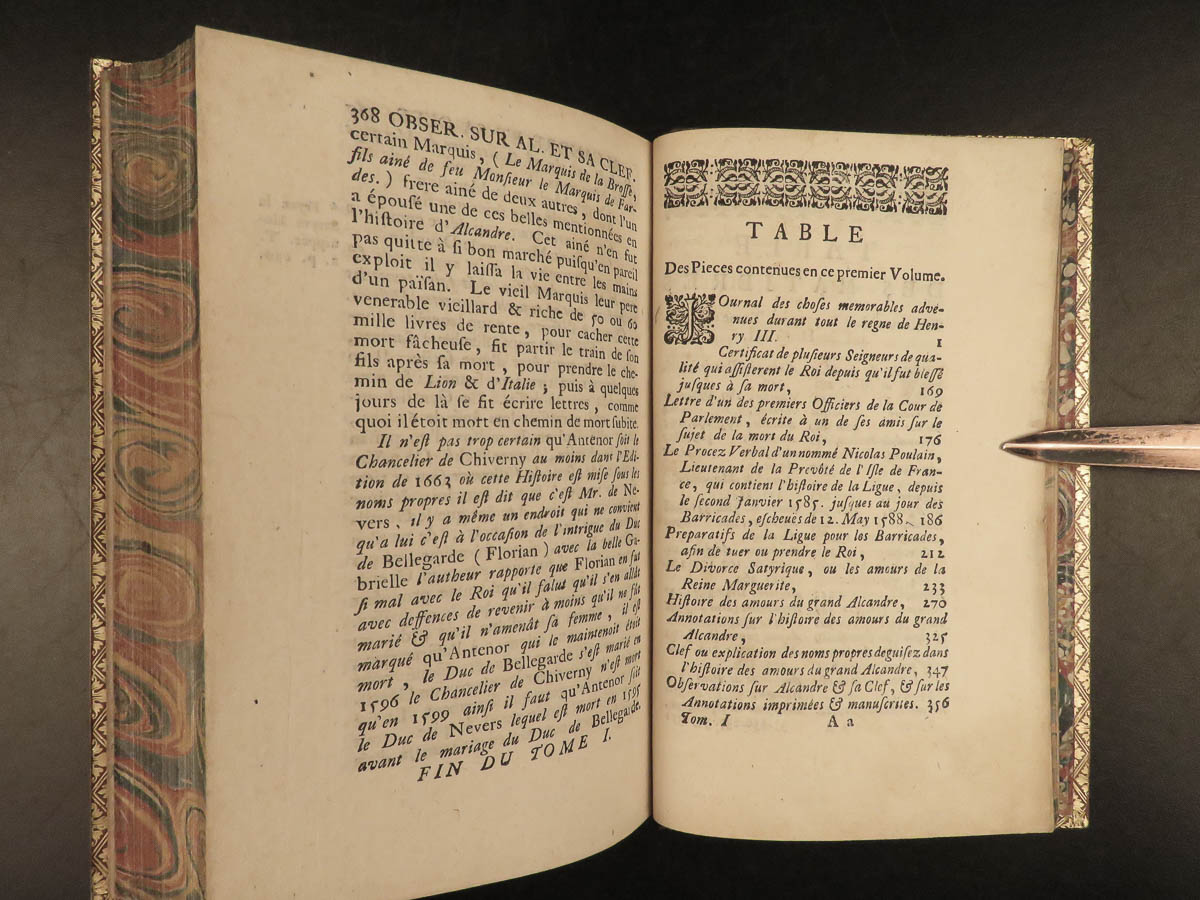 368 OBSER. SUR AL. ET SA CLEF.
certain Marquis, ( Le Marquis de la Brosse,
fils ainé de feu Monsieur le Marquis de Far-
des. ) frere ainé de deux autres, dont l'un
a épousé une de ces belles mentionnées en
l'histoire d'Alcandre. Cet ainé n'en fut
pas quitte à si bon marché puisqu'en pareil
exploit il y laissa la vie entre les mains
d'un païsan. Le vieil Marquis leur pere
venerable vieillard & riche de 50 ou 60
mille livres de rente, pour cacher cette
mort fâcheuse, fit partir le train de son
fils après sa mort, pour prendre le che-
min de Lion & d'Italie ; puis à quelques
jours de là se fit écrire lettres, comme
quoi il étoit mort en chemin de mort subite.
Il n'est pas trop certain qu'Antenor soit le
Chancelier de Chiverny au moins dans l'Edi-
tion de 1663 où cette Histoire est mise sous les
noms propres il est dit que c'est Mr. de Ne-
vers, il y a même un endroit qui ne convient
qu'a lui c'est à l'occasion de l'intrigue du Duc
de Bellegarde ( Florian ) avec la belle Ga-
brielle l'autheur rapporte que Florian en fut
si mal avec le Roi qu'il falut qu'il s'en allât
avec deffences de revenir à moins qu'il ne fût
marié & qu'il n'amenât sa femme, il est
marqué qu'Antenor qui le maintenoit étoit
mort, le Duc de Bellegarde s'est marié en
1596 le Chancelier de Chiverny n'est mort
qu'en 1599 ainsi il faut qu'Antenor soit
le Duc de Nevers lequel est mort en 1595
avant le mariage du Duc de Bellegarde.
FIN DU TOME I.
TABLE
Des Pieces contenues en ce premier Volume.
JOurnal des choses memorables adve-
nues durant tout le regne de Hen-
ry III. 1
Certificat de plusieurs Seigneurs de qua-
lité qui assisterent le Roi depuis qu'il fut blessé
jusques à sa mort, 169
Lettre d'un des premiers Officiers de la Cour de
Parlement, écrite à un de ses amis sur le
sujet de la mort du Roi, 176
Le Procez Verbal d'un nommé Nicolas Poulain,
Lieutenant de la Prevôté de l'Isle de Fran-
ce, qui contient l'histoire de la Ligue, depuis
le second Janvier 1585. jusques au jour des
Barricades, escheues de 12. May 1588. 186
Preparatifs de la Ligue pour les Barricades,
afin de tuer ou prendre le Roi, 212
Le Divorce Satyrique, ou les amours de la
Reine Marguerite, 233
Histoire des amours du grand Alcandre, 270
Annotations sur l'histoire des amours du grand
Alcandre, 325
Clef ou explication des noms propres deguisez dans
l'histoire des amours du grand Alcandre, 347
Observations sur Alcandre & sa Clef, & sur les
Annotations imprimées & manuscrites. 356
Tom. I A a